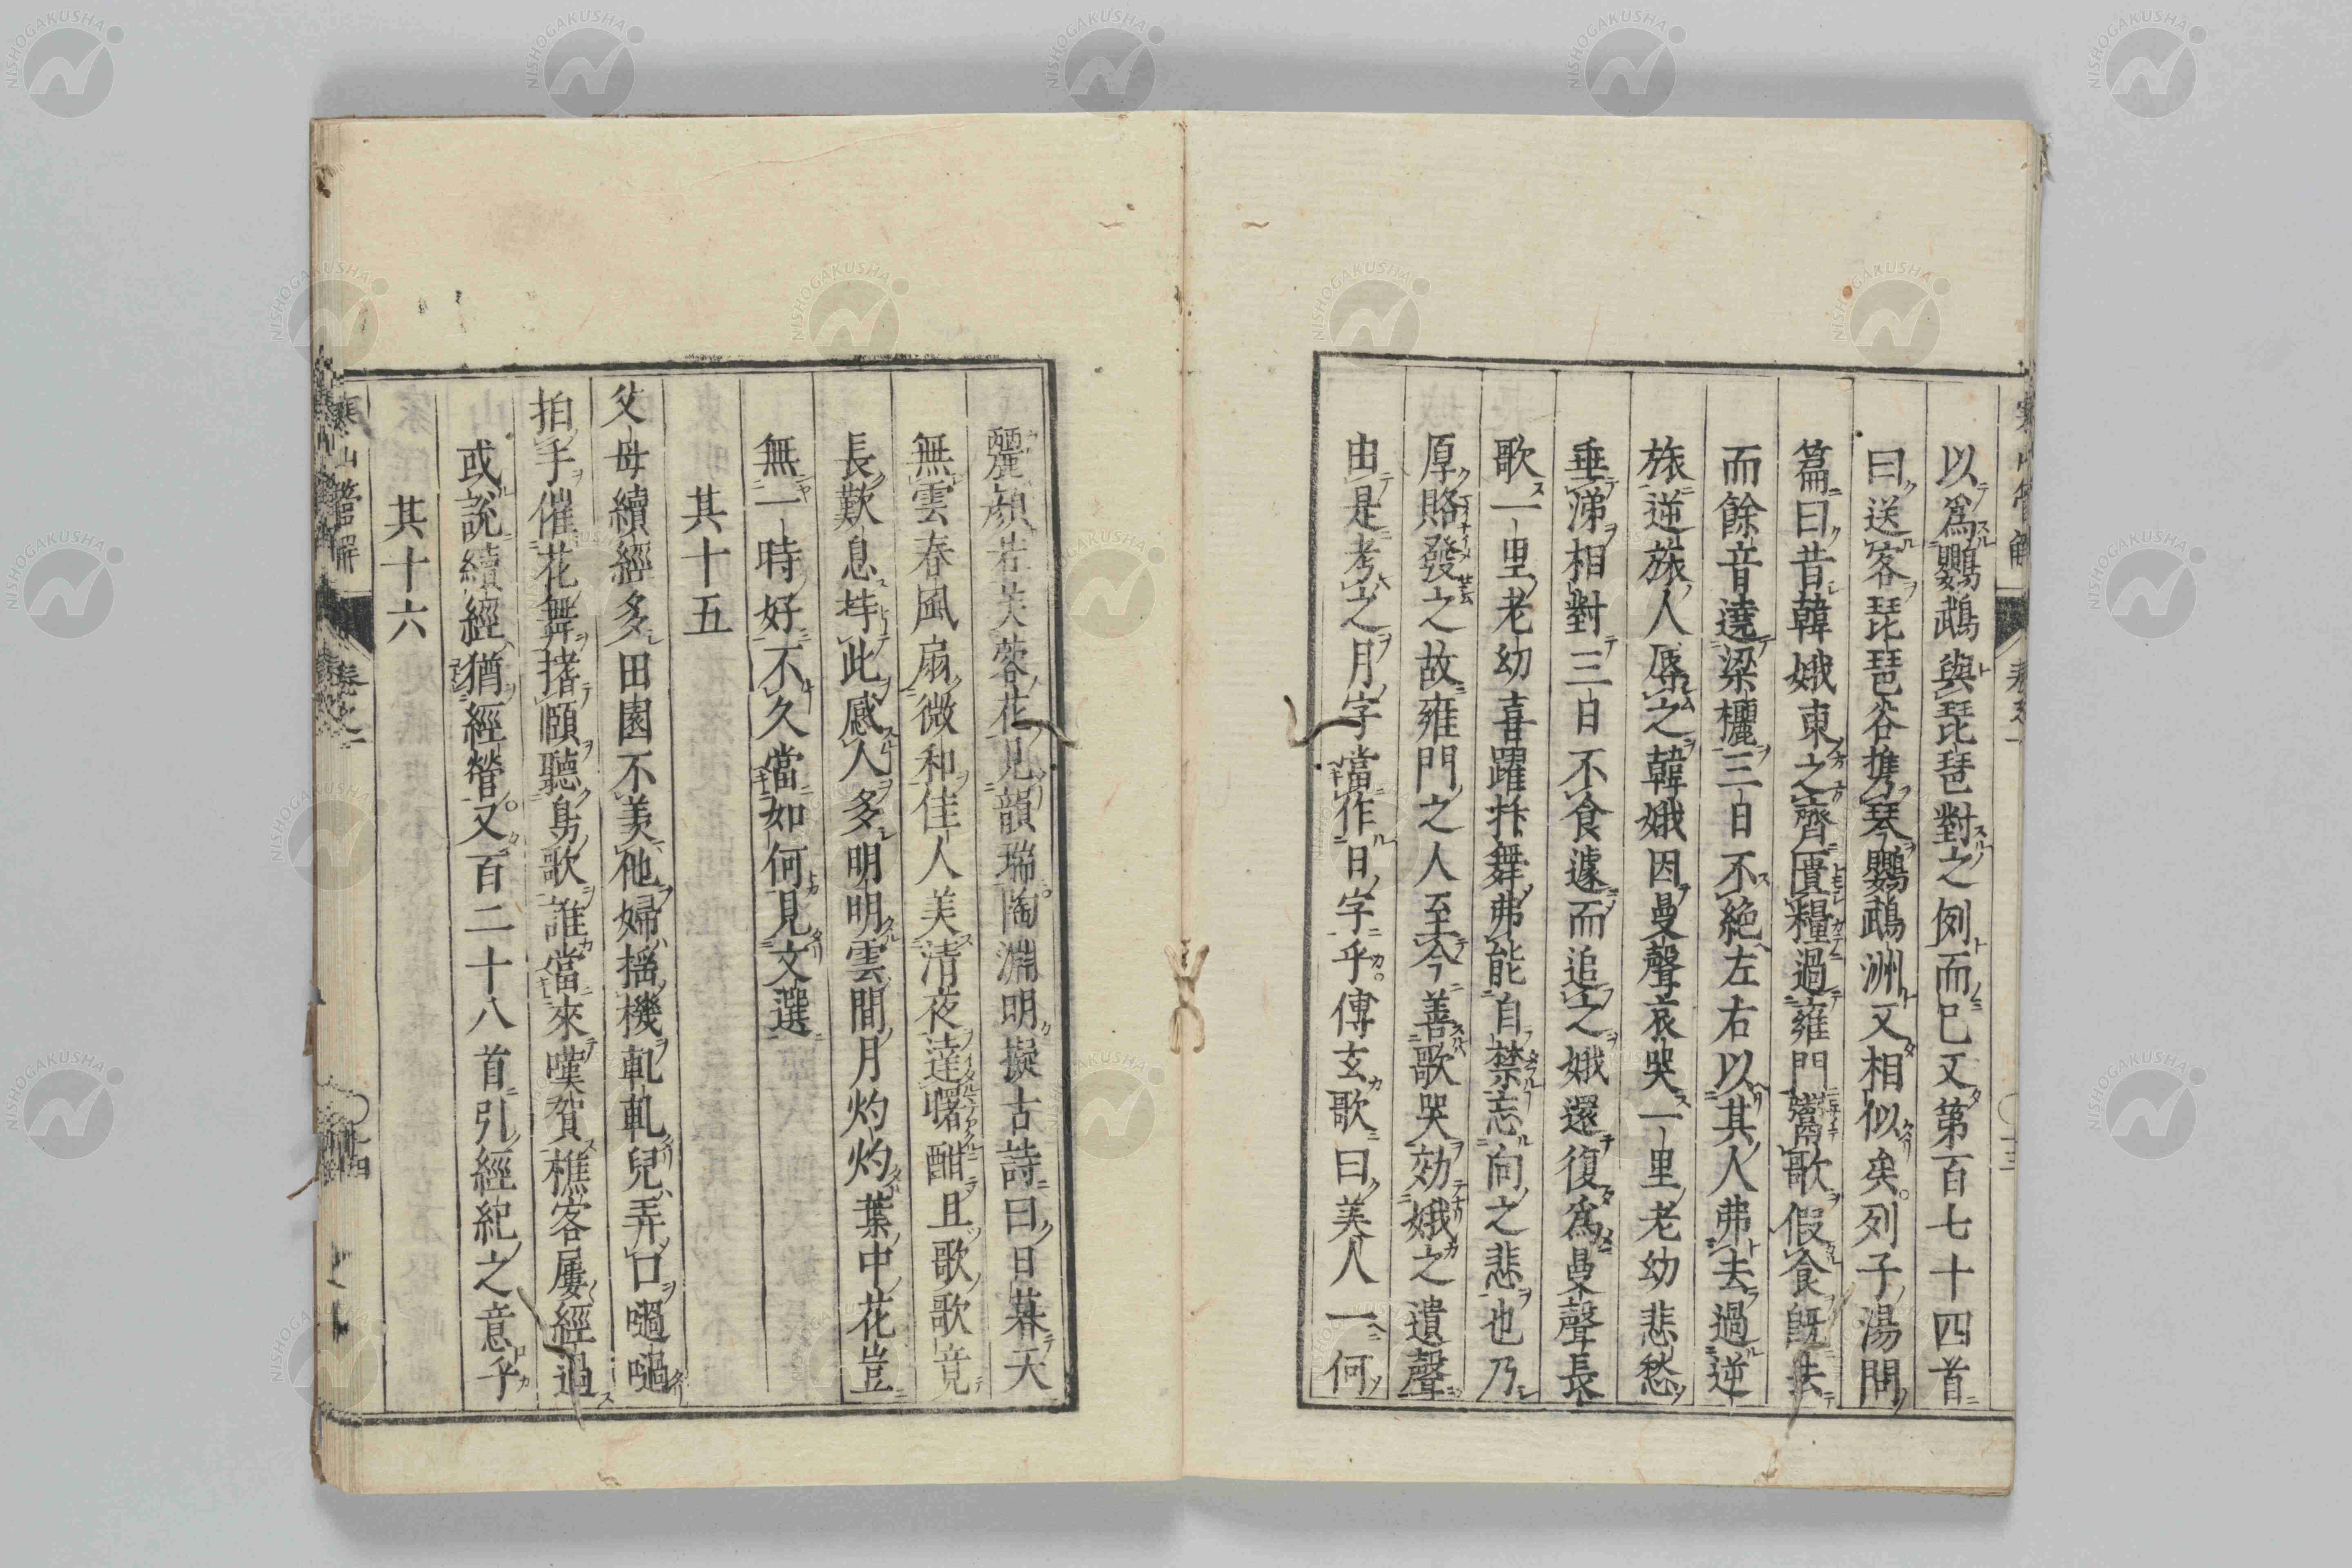 以爲鸚鵡與琵琶對之例而已又第百七十四首
曰送客琵琶谷携琴鸚鵡洲又相似矣列子湯問
篇曰昔韓娥東之齊匱糧過雍門鬻歌假食既去
而餘音遶梁欐三日不絶左右以其人弗去過逆
旅逆旅人辱之韓娥因曼聲哀哭一里老幼悲愁
垂涕相對三日不食遽而追之娥還復爲曼聲長
歌一里老幼喜躍抃舞弗能自禁忘向之悲也乃
厚賂發之故雍門之人至今善歌哭効娥之遺聲
由是考之月字當作日字乎傳玄歌曰美人一何
麗顔若芙蓉花見韻瑞陶淵明擬古詩曰日暮天
無雲春風扇微和佳人美清夜達曙酣且歌歌竟
長歎息持此感人多明明雲間月灼灼葉中花豈
無一時好不久當如何見文選
其十五
父母續經多田園不羡他婦揺機軋軋兒弄口嘓嘓
拍手催花舞搘頤聽鳥歌誰當來嘆賀樵客屢經過
或説續經猶經營又百二十八首引經紀之意乎
其十六
寒山詩管解 巻之一